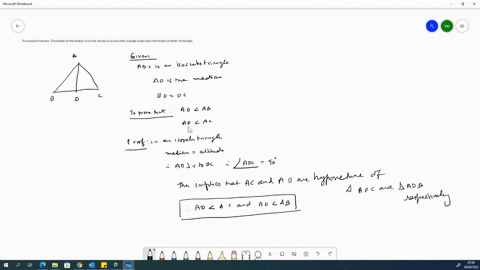 Microsoft Whiteboard
Prove each theorem. The length of the median from the vertex of an isosceles triangle is less than the length of either of the legs.
Given
ABC is an isosceles triangle
AD is the median
BD = DC
To prove that: AD < AB
AD < AC
Proof: in an isosceles triangle
median = altitude
= AD ⊥ to BC ∴ ∠ADC = 90°
This implies that AC and AB are hypotenuse of
Δ ADC and Δ ADB
respectively
∴ AD < AC and AD < AB
A
B
D
C